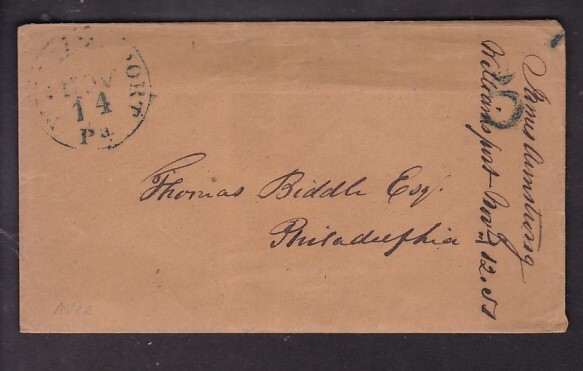 WILLIAMSPORT
NOV
14
Pa
5
Thomas Biddle Esq.
Philadelphia
James Armstrong
Williamsport Nov 12. 51